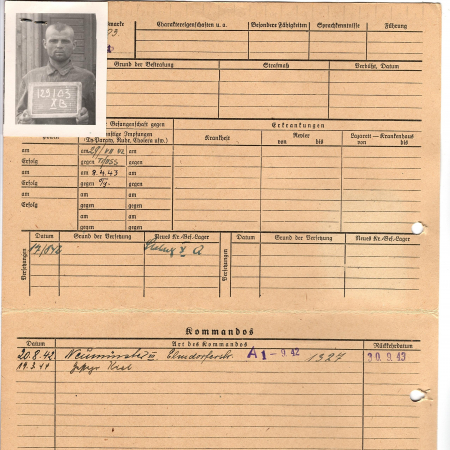 129103
XB
marke
Charaktereigenschaften u. a.
Besondere Fähigkeiten
Sprachkenntnisse
Führung
Grund der Bestrafung
Strafmaß
Verbüßt, Datum
Gefangenschaft gegen
Erkrankungen
sonstige Impfungen
(Tu-Paraty, Ruhr, Cholera usw.)
Krankheit
Revier
von bis
Lazarett — Krankenhaus
von bis
am
am
am
Erfolg
gegen
gegen
am
am 8.4.43
am
Erfolg
gegen Ty.
gegen
am
am
am
Erfolg
gegen
gegen
am
am
gegen
gegen
Versetzungen
Datum
Grund der Versetzung
Neues Kr.-Gef.-Lager
Versetzungen
Datum
Grund der Versetzung
Neues Kr.-Gef.-Lager
Stalag X A
Kommandos
Datum
Art des Kommandos
Rückkehrdatum
20.8.42. Neumünster III, A1 - 9.42 1327 30.9.43